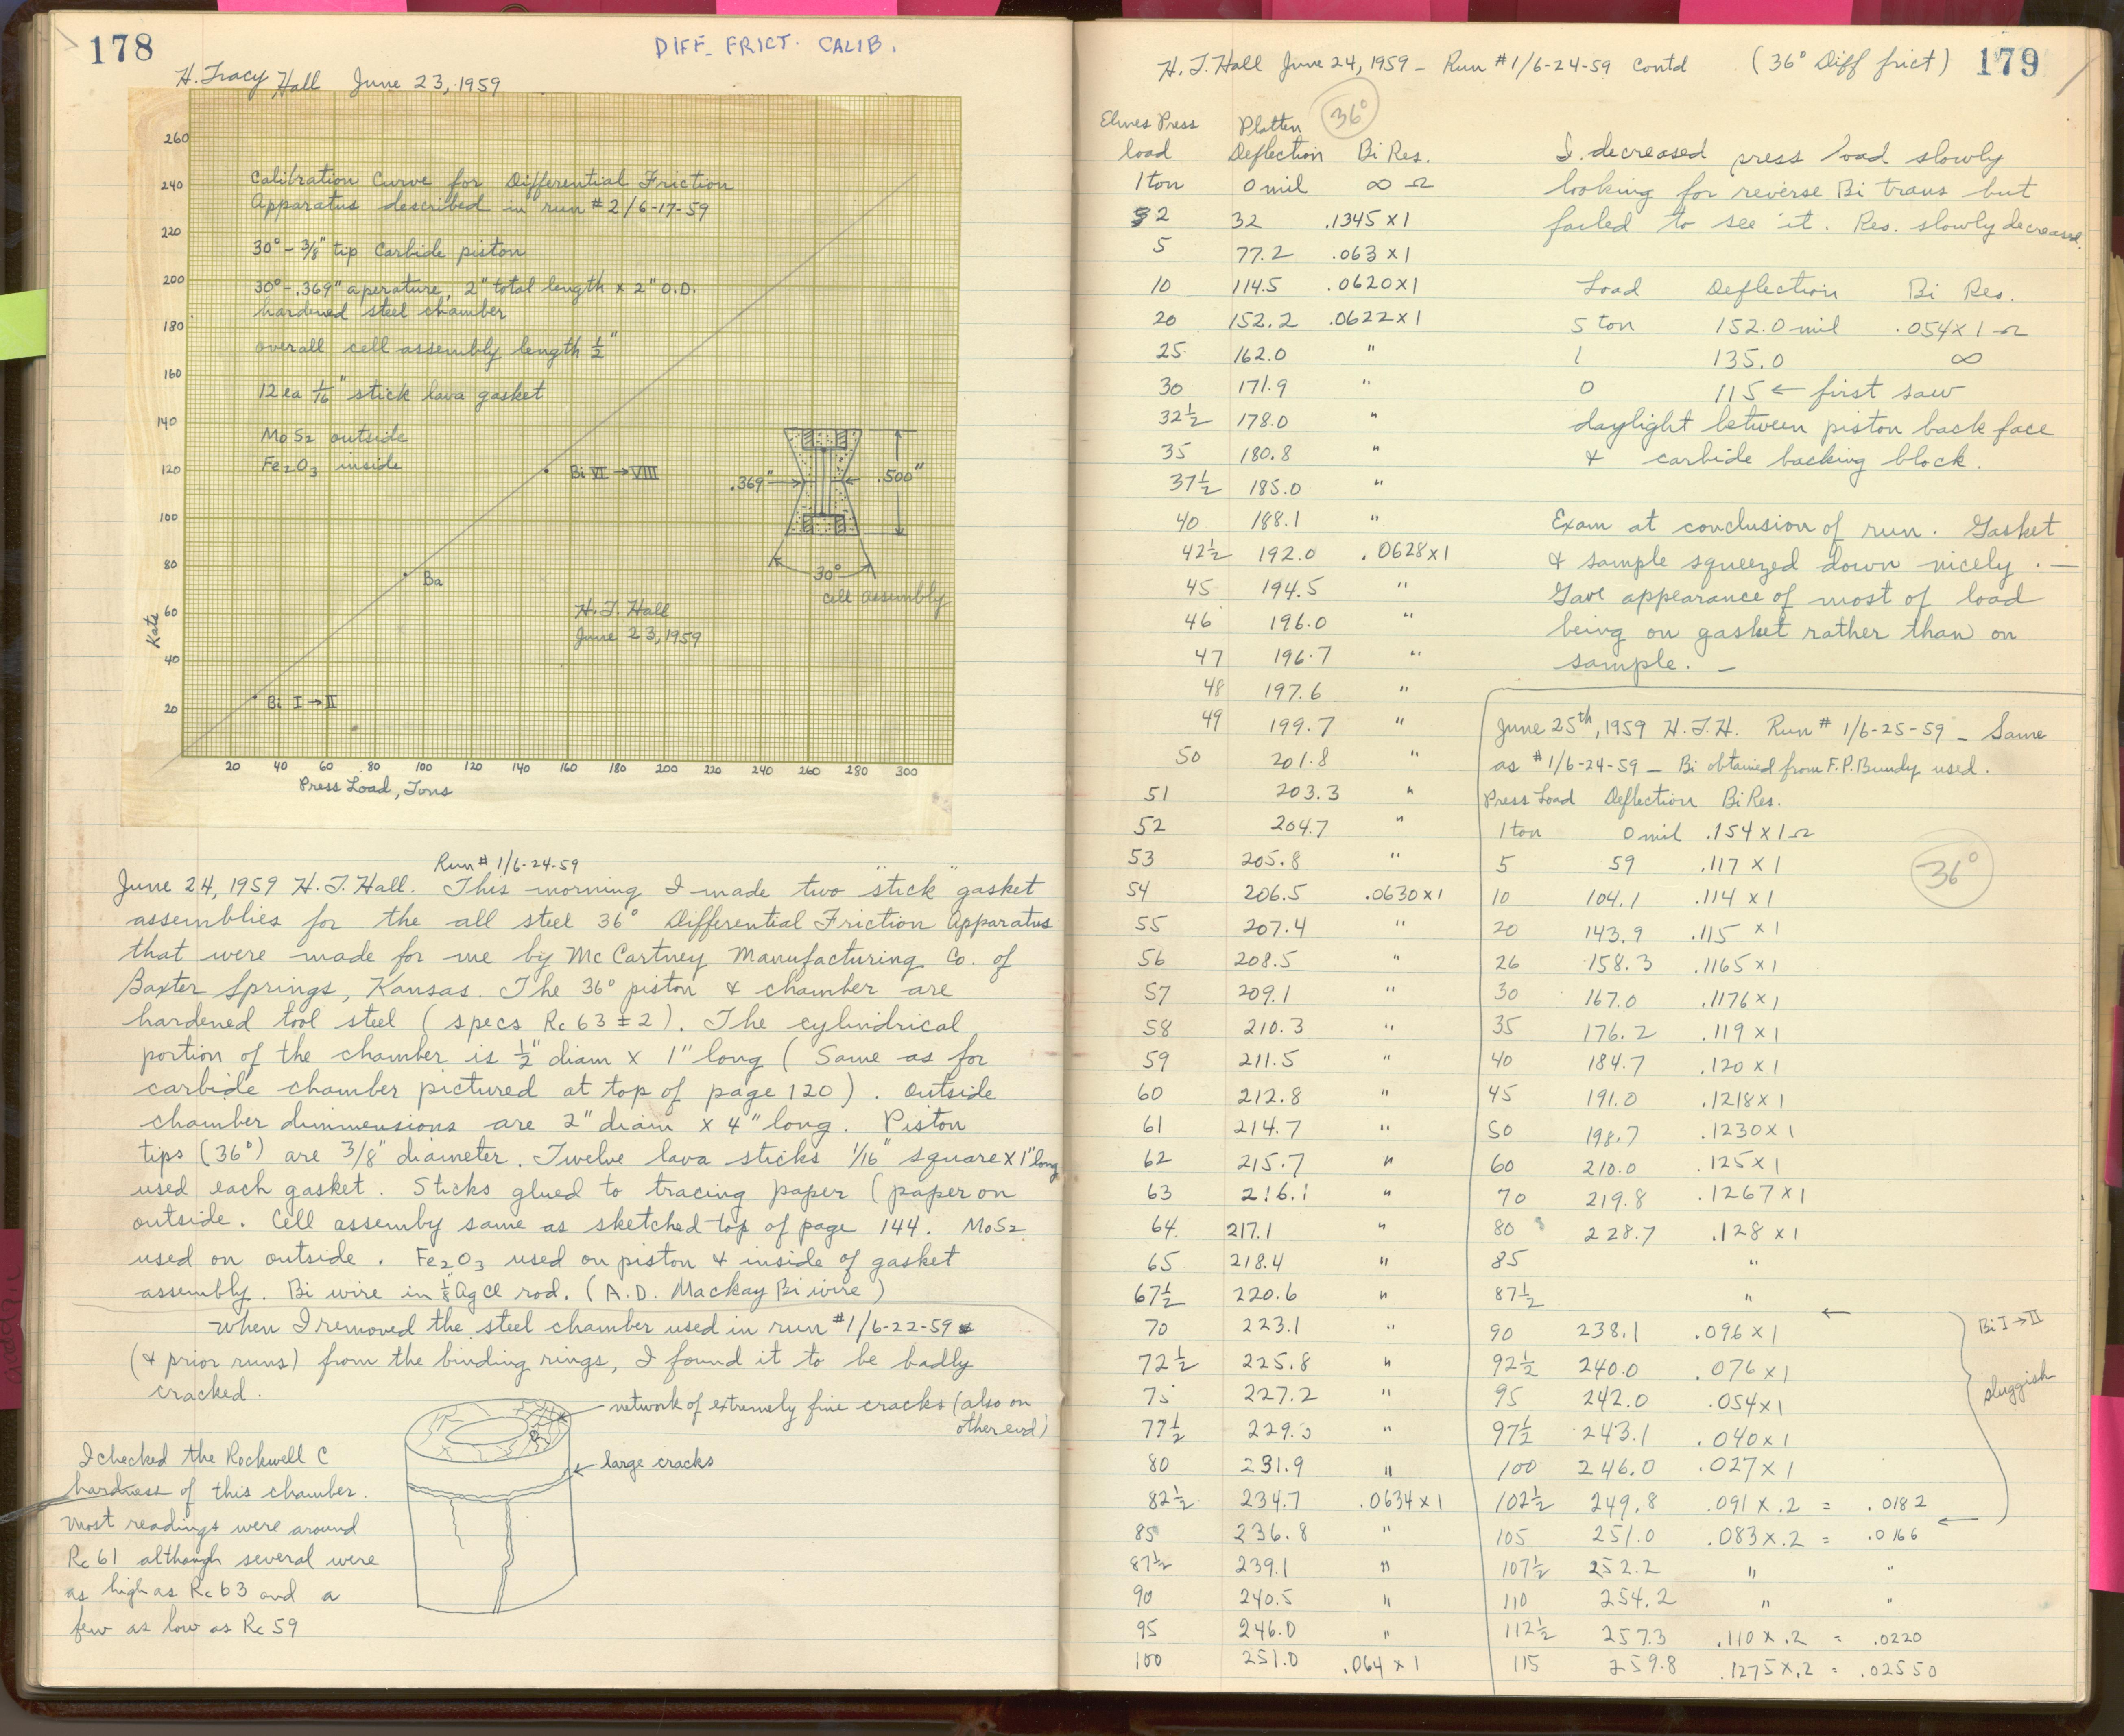 178
DIFF. FRICT. CALIB.
H. Tracy Hall June 23, 1959
260
240
220
200
180
160
140
120
100
80
60
40
20
Kats
Calibration Curve for Differential Friction
Apparatus described in run #2/6-17-59
30° - 3/8" tip Carbide piston
30° - .369" aperature, 2" total length x 2" O.D.
hardened steel chamber
overall cell assembly length 1/2"
12 ea 1/16" stick lava gasket
MoS2 outside
Fe2O3 inside
Bi VI → VIII
Ba
Bi I → II
.369"
.500"
30°
cell assembly
H. T. Hall
June 23, 1959
20 40 60 80 100 120 140 160 180 200 220 240 260 280 300
Press Load, Tons
Run # 1/6-24-59
June 24, 1959 H. T. Hall. This morning I made two "stick" gasket
assemblies for the all steel 36° Differential Friction Apparatus
that were made for me by McCartney Manufacturing Co. of
Baxter Springs, Kansas. The 36° piston & chamber are
hardened tool steel (specs Rc 63 ± 2). The cylindrical
portion of the chamber is 1/2" diam x 1" long (Same as for
carbide chamber pictured at top of page 120). Outside
chamber dimmensions are 2" diam x 4" long. Piston
tips (36°) are 3/8" diameter. Twelve lava sticks 1/16" square x 1" long
used each gasket. Sticks glued to tracing paper (paper on
outside. Cell assemby same as sketched top of page 144. MoS2
used on outside. Fe2O3 used on piston & inside of gasket
assembly. Bi wire in 1/8" AgCl rod. (A.D. Mackay Bi wire)
When I removed the steel chamber used in run #1/6-22-59
(& prior runs) from the binding rings, I found it to be badly
cracked.
network of extremely fine cracks (also on
other end)
large cracks
I checked the Rockwell C
hardness of this chamber.
Most readings were around
Rc 61 although several were
as high as Rc 63 and a
few as low as Rc 59
H. T. Hall June 24, 1959 - Run #1/6-24-59 Contd (36° Diff frict) 179
36°
Elmes Press Platten
load Deflection Bi Res.
1 ton 0 mil ∞ Ω
2 32 .1345 x 1
5 77.2 .063 x 1
10 114.5 .0620 x 1
20 152.2 .0622 x 1
25 162.0 "
30 171.9 "
32 1/2 178.0 "
35 180.8 "
37 1/2 185.0 "
40 188.1 "
42 1/2 192.0 .0628 x 1
45 194.5 "
46 196.0 "
47 196.7 "
48 197.6 "
49 199.7 "
50 201.8 "
51 203.3 "
52 204.7 "
53 205.8 "
54 206.5 .0630 x 1
55 207.4 "
56 208.5 "
57 209.1 "
58 210.3 "
59 211.5 "
60 212.8 "
61 214.7 "
62 215.7 "
63 216.1 "
64 217.1 "
65 218.4 "
67 1/2 220.6 "
70 223.1 "
72 1/2 225.8 "
75 227.2 "
77 1/2 "
80 231.9 "
82 1/2 234.7 .0634 x 1
85 236.8 "
87 1/2 239.1 "
90 240.5 "
95 246.0 "
100 251.0 .064 x 1
I decreased press load slowly
looking for reverse Bi trans but
failed to see it. Res. slowly decreased.
Load Deflection Bi Res.
5 ton 152.0 mil .054 x 1 Ω
1 135.0 ∞
0 115 ← first saw
daylight between piston back face
& carbide backing block.
Exam at conclusion of run. Gasket
& sample squeezed down nicely. —
Gave appearance of most of load
being on gasket rather than on
sample. —
June 25th, 1959 H. T. H. Run # 1/6-25-59 - Same
as #1/6-24-59 - Bi obtained from F. P. Bundy used.
Press Load Deflection Bi Res.
1 ton 0 mil .154 x 1 Ω
5 59 .117 x 1
36°
10 104.1 .114 x 1
20 143.9 .115 x 1
26 158.3 .1165 x 1
30 167.0 .1176 x 1
35 176.2 .119 x 1
40 184.7 .120 x 1
45 191.0 .1218 x 1
50 198.7 .1230 x 1
60 210.0 .125 x 1
70 219.8 .1267 x 1
80 228.7 .128 x 1
85 "
87 1/2 "
← Bi I → II
90 238.1 .096 x 1
92 1/2 240.0 .076 x 1
sluggish
95 242.0 .054 x 1
97 1/2 243.1 .040 x 1
100 246.0 .027 x 1
102 1/2 249.8 .091 x .2 = .0182
105 251.0 .083 x .2 = .0166 ←
107 1/2 252.2 " "
110 254.2 " "
112 1/2 257.3 .110 x .2 = .0220
115 259.8 .1275 x .2 = .02550